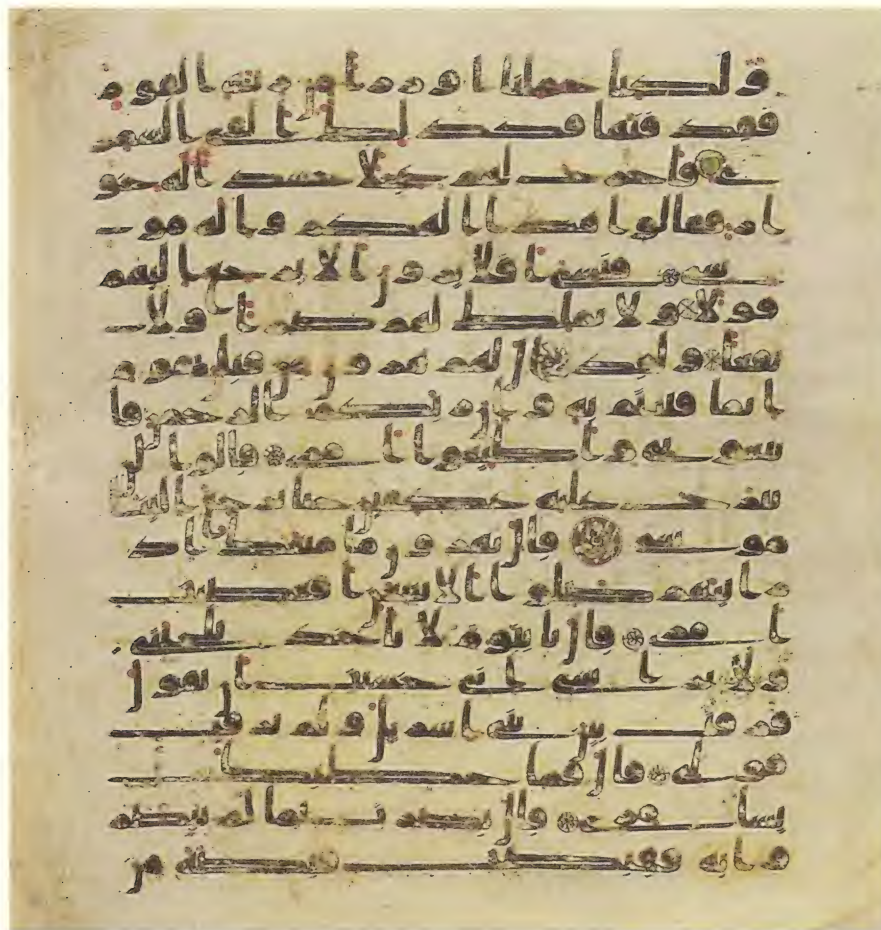 ولكنا حملنا اوزارا من زينة القوم
فقذفنها فكذلك القى السمر
ى فاخرج لهم عجلا جسدا له خو
ار فقالوا هذا الهكم واله مو
سى فنسى افلا يرون الا يرجع اليهم
قولا ولا يملك لهم ضرا ولا
نفعا ولقد قال لهم هرون من قبل يقوم
انما فتنتم به وان ربكم الرحمن فا
تبعونى واطيعوا امرى قالوا لن
نبرح عليه عكفين حتى يرجع الينا
موسى قال يهرون ما منعك اذ ر
ايتهم ضلوا الا تتبعن افعصيت
امرى قال يابنوم لا تاخذ بلحيتى
ولا براسى انى خشيت ان تقول
فرقت بين بنى اسريل ولم ترقب
قولى قال فما خطبك
يسمرى قال بصرت بما لم يبصر
وا به فقبضت قبضة من